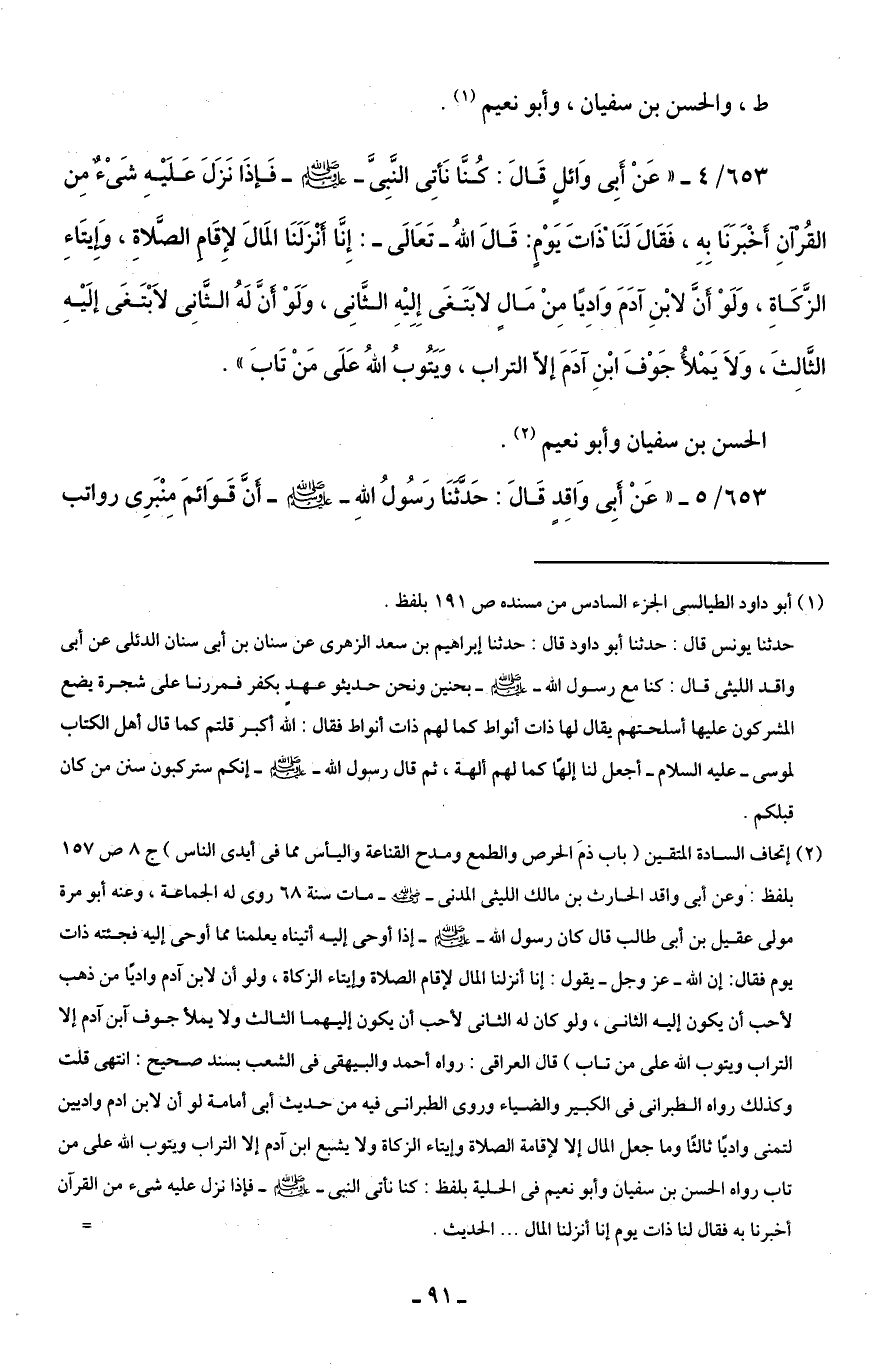 ط ، والحسن بن سفيان ، وأبو نعيم (١) .
٦٥٣/ ٤ ـ « عَنْ أَبِى وَائلٍ قَالَ : كُنَّا نَأتِى النَّبِىَّ ـ ﷺ ـ فَإِذَا نَزَلَ عَلَيْهِ شَىْءٌ مِن
القُرْآنِ أَخْبَرَنَا بِهِ ، فَقَالَ لَنَا ذَاتَ يَوْمٍ: قَالَ اللهُ ـ تَعَالَى ـ : إِنَّا أَنْزَلَنَا المَالَ لإِقَامِ الصَّلاَةِ ، وَإِيتَاءِ
الزَّكَاةِ ، وَلَوْ أَنَّ لابْنِ آدَمَ وَادِيًا مِنْ مَالٍ لابَتَغَى إِلَيْهِ الثَّانِى ، وَلَوْ أَنَّ لَهُ الثَّانِى لاَبْتَغَى إِلَيْهِ
الثَّالِثَ ، وَلاَ يَمْلأُ جَوْفَ ابْنِ آدَمَ إِلاّ التراب ، وَيَتُوبُ اللهُ عَلَى مَنْ تَابَ » .
الحسن بن سفيان وأبو نعيم (٢) .
٦٥٣/ ٥ ـ « عَنْ أَبِى وَاقِدٍ قَالَ : حَدَّثَنَا رَسُولُ اللهِ ـ ﷺ ـ أَنَّ قَوَائمَ مِنْبَرِى رواتب
(١) أبو داود الطيالسى الجزء السادس من مسنده ص ١٩١ بلفظ .
حدثنا يونس قال : حدثنا أبو داود قال : حدثنا إبراهيم بن سعد الزهرى عن سنان بن أبى سنان الدئلى عن أبى
واقد الليثى قال : كنا مع رسول الله ـ ﷺ ـ بحنين ونحن حديثو عهدٍ بكفر فمررنا على شجرة يضع
المشركون عليها أسلحتهم يقال لها ذات أنواط كما لهم ذات أنواط فقال : الله أكبر قلتم كما قال أهل الكتاب
لموسى ـ عليه السلام ـ أجعل لنا إلهًا كما لهم ألهة ، ثم قال رسول الله ـ ﷺ ـ إنكم ستركبون سنن من كان
قبلكم .
(٢) إتحاف السادة المتقين ( باب ذمَ الحرص والطمع ومدح القناعة واليأس مما فى أيدى الناس ) ج ٨ ص ١٥٧
بلفظ : وعن أبى واقد الحارث بن مالك الليثى المدنى ـ رضي الله عنه ـ مات سنة ٦٨ روى له الجماعة ، وعنه أبو مرة
مولى عقيل بن أبى طالب قال كان رسول الله ـ ﷺ ـ إذا أوحى إليه أتيناه يعلمنا مما أوحى إليه فجئته ذات
يوم فقال: إن الله ـ عز وجل ـ يقول : إنا أنزلنا المال لإقام الصلاة وإيتاء الزكاة ، ولو أن لابن آدم واديًا من ذهب
لأحب أن يكون إليه الثانى ، ولو كان له الثانى لأحب أن يكون إليهما الثالث ولا يملأ جوف آبن آدم إلا
التراب ويتوب الله على من تاب ) قال العراقى : رواه أحمد والبيهقى فى الشعب بسند صحيح : انتهى قلت
وكذلك رواه الطبرانى فى الكبير والضياء وروى الطبرانى فيه من حديث أبى أمامة لو أن لابن ادم واديين
لتمنى واديًا ثالثًا وما جعل المال إلا لإقامة الصلاة وإيتاء الزكاة ولا يشبع ابن آدم إلا التراب ويتوب الله على من
تاب رواه الحسن بن سفيان وأبو نعيم فى الحلية بلفظ : كنا نأتى النبى ـ ﷺ ـ فإذا نزل عليه شىء من القرآن
أخبرنا به فقال لنا ذات يوم إنا أنزلنا المال ... الحديث . =
ـ ٩١ ـ